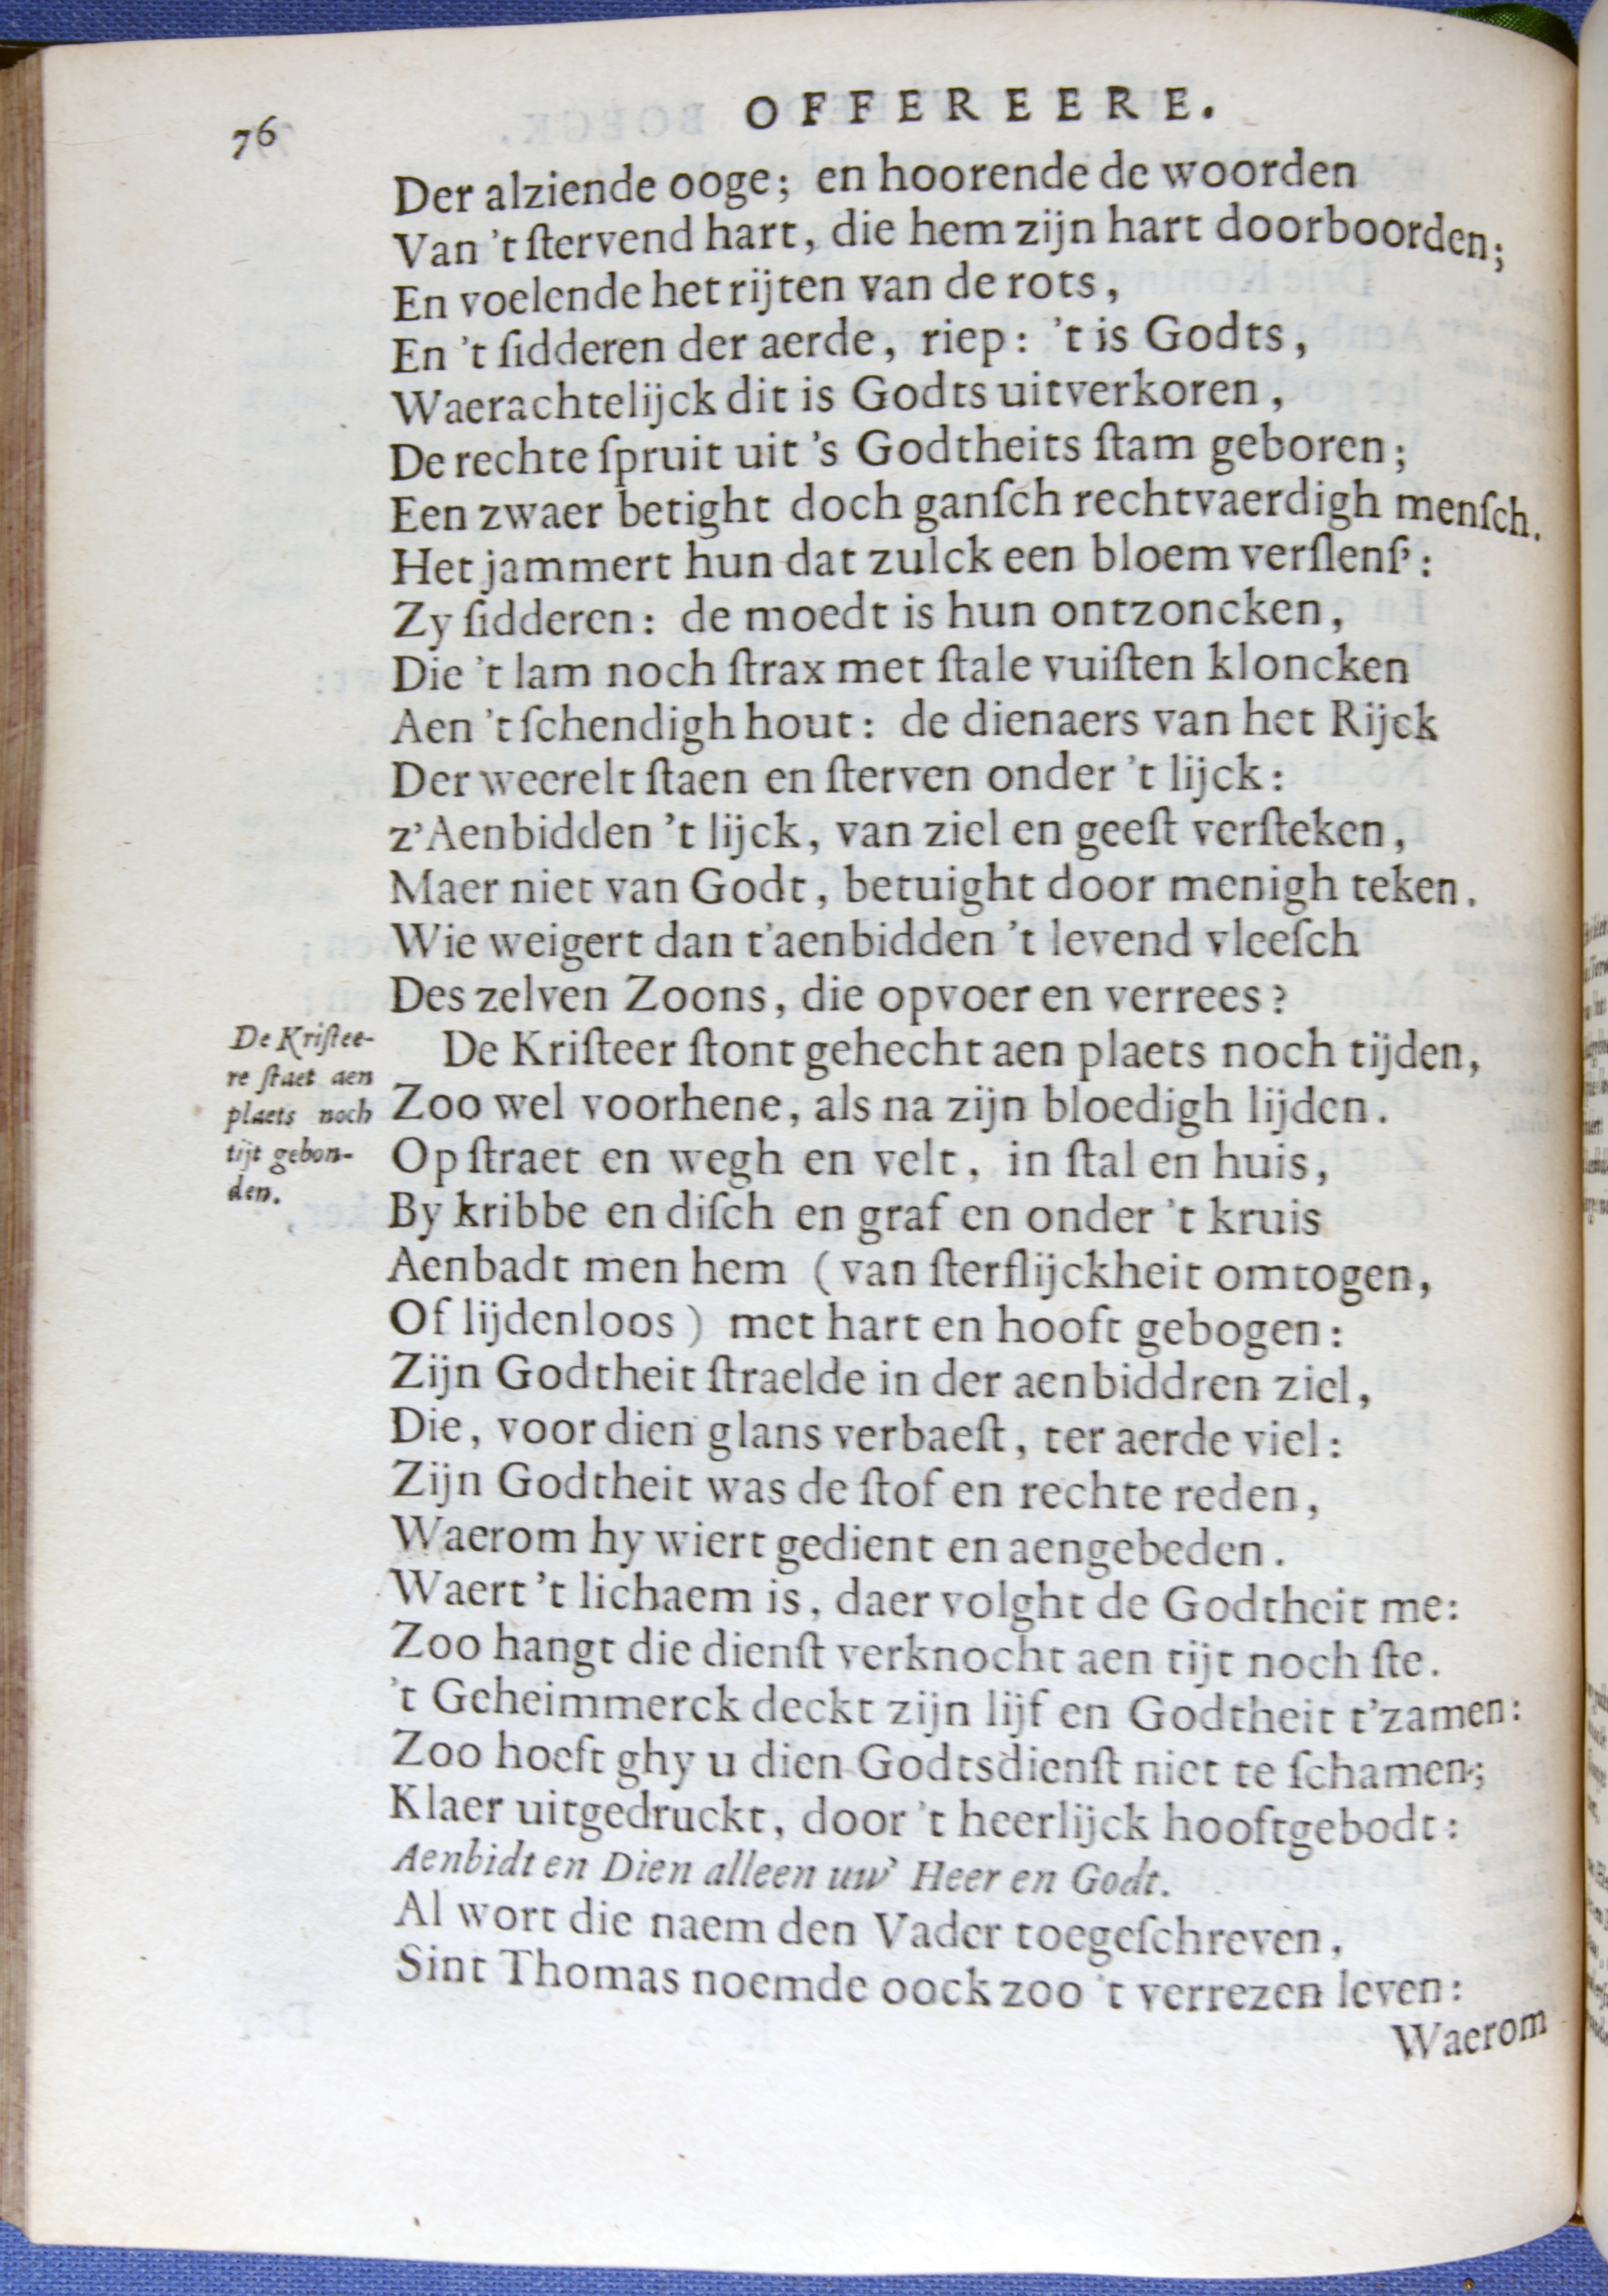 76
OFFEREERE.
Der alziende ooge; en hoorende de woorden
Van 't ſtervend hart, die hem zijn hart doorboorden;
En voelende het rijten van de rots,
En 't ſidderen der aerde, riep: 't is Godts,
Waerachtelijck dit is Godts uitverkoren,
De rechte ſpruit uit 's Godtheits ſtam geboren;
Een zwaer betight doch ganſch rechtvaerdigh menſch.
Het jammert hun dat zulck een bloem verſlenſ':
Zy ſidderen: de moedt is hun ontzoncken,
Die 't lam noch ſtrax met ſtale vuiſten kloncken
Aen 't ſchendigh hout: de dienaers van het Rijck
Der weerelt ſtaen en ſterven onder 't lijck:
z'Aenbidden 't lijck, van ziel en geeſt verſteken,
Maer niet van Godt, betuight door menigh teken.
Wie weigert dan t'aenbidden 't levend vleeſch
Des zelven Zoons, die opvoer en verrees?
De Kriſtee-
re ſtaet aen
plaets noch
tijt gebon-
den.
De Kriſteer ſtont gehecht aen plaets noch tijden,
Zoo wel voorhene, als na zijn bloedigh lijden.
Op ſtraet en wegh en velt, in ſtal en huis,
By kribbe en diſch en graf en onder 't kruis
Aenbadt men hem (van ſterflijckheit omtogen,
Of lijdenloos) met hart en hooft gebogen:
Zijn Godtheit ſtraelde in der aenbiddren ziel,
Die, voor dien glans verbaeſt, ter aerde viel:
Zijn Godtheit was de ſtof en rechte reden,
Waerom hy wiert gedient en aengebeden.
Waert 't lichaem is, daer volght de Godtheit me:
Zoo hangt die dienſt verknocht aen tijt noch ſte.
't Geheimmerck deckt zijn lijf en Godtheit t'zamen:
Zoo hoeft ghy u dien Godtsdienſt niet te ſchamen;
Klaer uitgedruckt, door 't heerlijck hooftgebodt:
Aenbidt en Dien alleen uw' Heer en Godt.
Al wort die naem den Vader toegeſchreven,
Sint Thomas noemde oock zoo 't verrezen leven:
Waerom